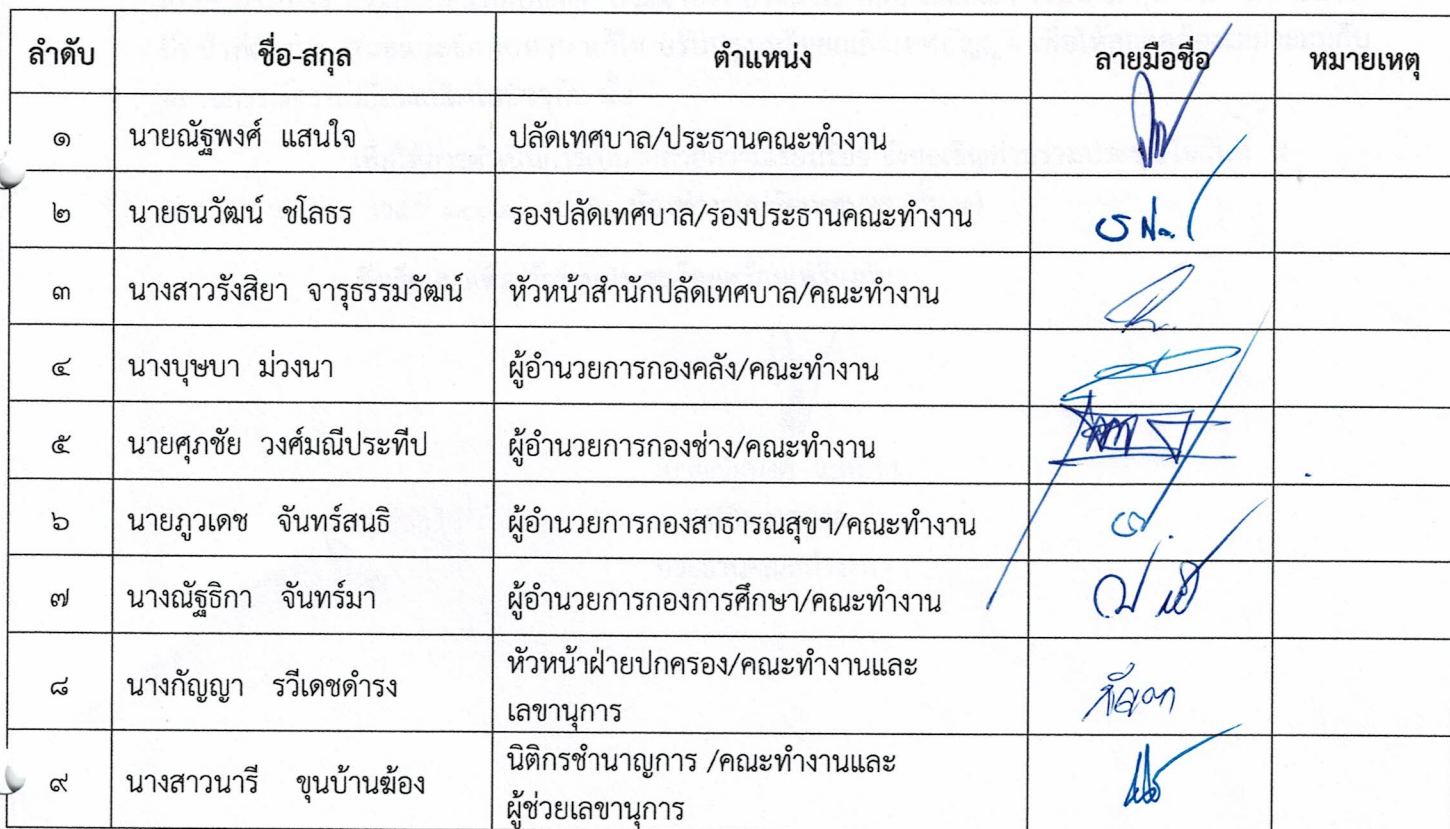 ลำดับ ชื่อ-สกุล ตำแหน่ง ลายมือชื่อ หมายเหตุ
๑ นายณัฐพงศ์ แสนใจ ปลัดเทศบาล/ประธานคณะทำงาน
๒ นายธนวัฒน์ ชโลธร รองปลัดเทศบาล/รองประธานคณะทำงาน
๓ นางสาวรังสิยา จารุธรรมวัฒน์ หัวหน้าสำนักปลัดเทศบาล/คณะทำงาน
๔ นางบุษบา ม่วงนา ผู้อำนวยการกองคลัง/คณะทำงาน
๕ นายศุภชัย วงศ์มณีประทีป ผู้อำนวยการกองช่าง/คณะทำงาน
๖ นายภูวเดช จันทร์สนธิ ผู้อำนวยการกองสาธารณสุขฯ/คณะทำงาน
๗ นางณัฐธิกา จันทร์มา ผู้อำนวยการกองการศึกษา/คณะทำงาน
๘ นางกัญญา รวีเดชดำรง หัวหน้าฝ่ายปกครอง/คณะทำงานและ
เลขานุการ
๙ นางสาวนารี ขุนบ้านฆ้อง นิติกรชำนาญการ /คณะทำงานและ
ผู้ช่วยเลขานุการ